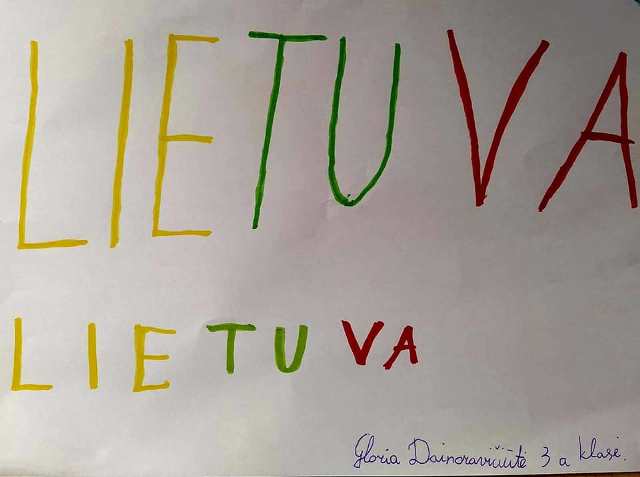 LIETUVA
LIETUVA
Gloria Dainoravičiūtė 3 a klasė.